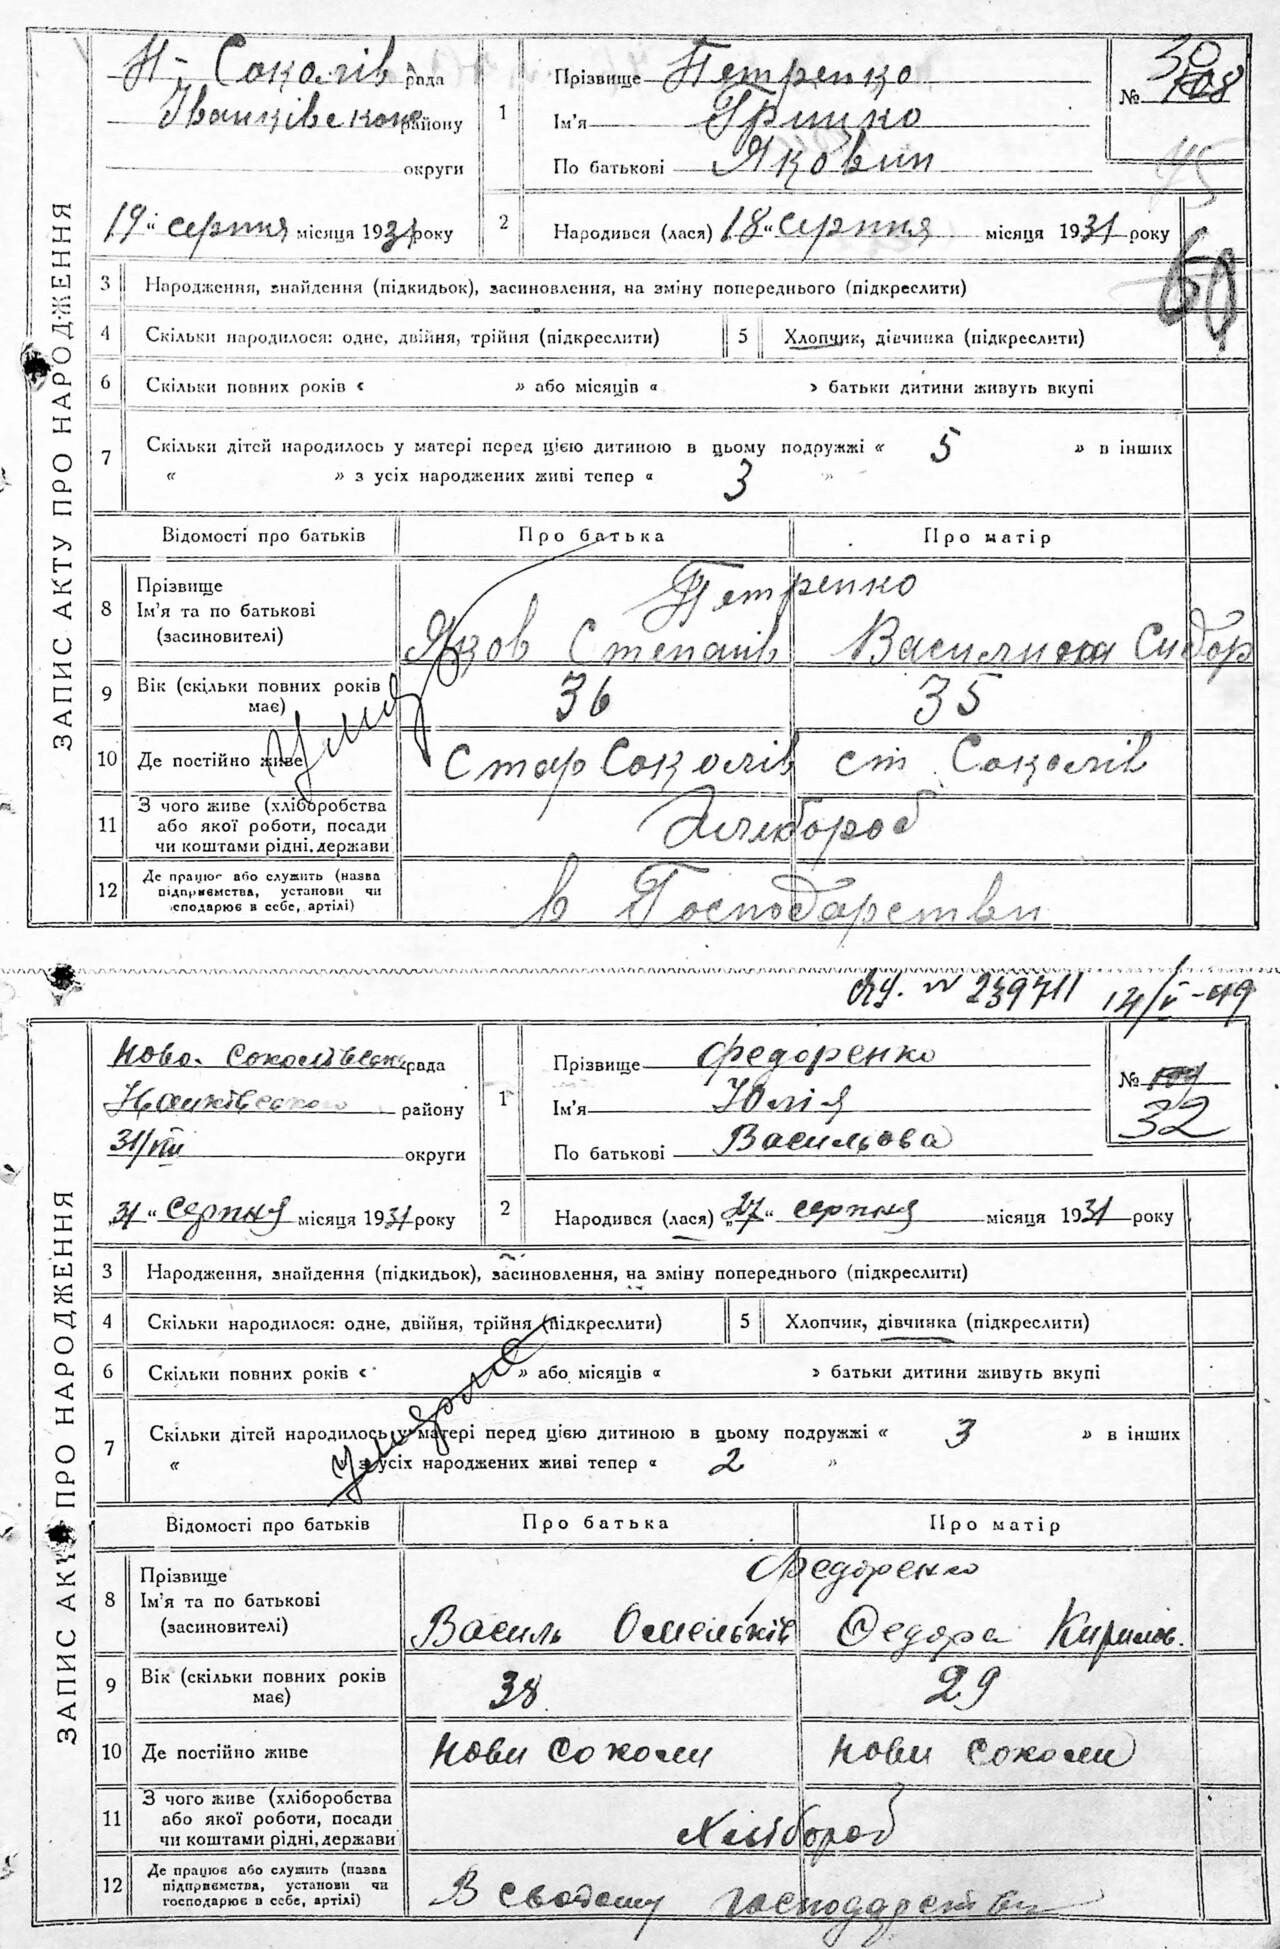 ЗАПИС АКТУ ПРО НАРОДЖЕННЯ
Н-Соколів рада
Іванківського району
округи
19 " серпня місяця 1931 року
1
Прізвище Петренко
Ім'я Грицко
По батькові Яковин
№ 108
30
75
60
2
Народився (лася) 18 " серпня місяця 1931 року
3 Народження, знайдення (підкидьок), засиновлення, на зміну попереднього (підкреслити)
4 Скільки народилося: одне, двійня, трійня (підкреслити)
5 Хлопчик, дівчинка (підкреслити)
6 Скільки повних років « » або місяців « » батьки дитини живуть вкупі
7 Скільки дітей народилось у матері перед цією дитиною в цьому подружжі « 5 » в інших
« » з усіх народжених живі тепер « 3 »
Відомості про батьків Про батька Про матір
8 Прізвище
Ім'я та по батькові
(засиновителі)
Петренко
Яков Степанів Василиса Сидор
9 Вік (скільки повних років
має)
36 35
10 Де постійно живе Стар Соколів ст. Соколів
11 З чого живе (хліборобства
або якої роботи, посади
чи коштами рідні, держави
Хлібороб
12 Де працює або служить (назва
підприємства, установи чи
господарює в себе, артілі)
в Господарстви
№ 239711 14/V-49
ЗАПИС АКТУ ПРО НАРОДЖЕННЯ
Ново-Соколівська рада
Іванківського району
31/VIII округи
31 " серпня місяця 1931 року
1
Прізвище Федоренко
Ім'я Юлія
По батькові Васильова
№ 109
32
2
Народився (лася) „27 " серпня місяця 1931 року
3 Народження, знайдення (підкидьок), засиновлення, на зміну попереднього (підкреслити)
4 Скільки народилося: одне, двійня, трійня (підкреслити)
5 Хлопчик, дівчинка (підкреслити)
6 Скільки повних років « » або місяців « » батьки дитини живуть вкупі
7 Скільки дітей народилось у матері перед цією дитиною в цьому подружжі « 3 » в інших
« з усіх народжених живі тепер « 2 »
Відомості про батьків Про батька Про матір
8 Прізвище
Ім'я та по батькові
(засиновителі)
Федоренко
Василь Омельків Федора Кирилов.
9 Вік (скільки повних років
має)
38 29
10 Де постійно живе Нови Соколи Нови Соколи
11 З чого живе (хліборобства
або якої роботи, посади
чи коштами рідні, держави
Хлібороб
12 Де працює або служить (назва
підприємства, установи чи
господарює в себе, артілі)
В своєму господарстви